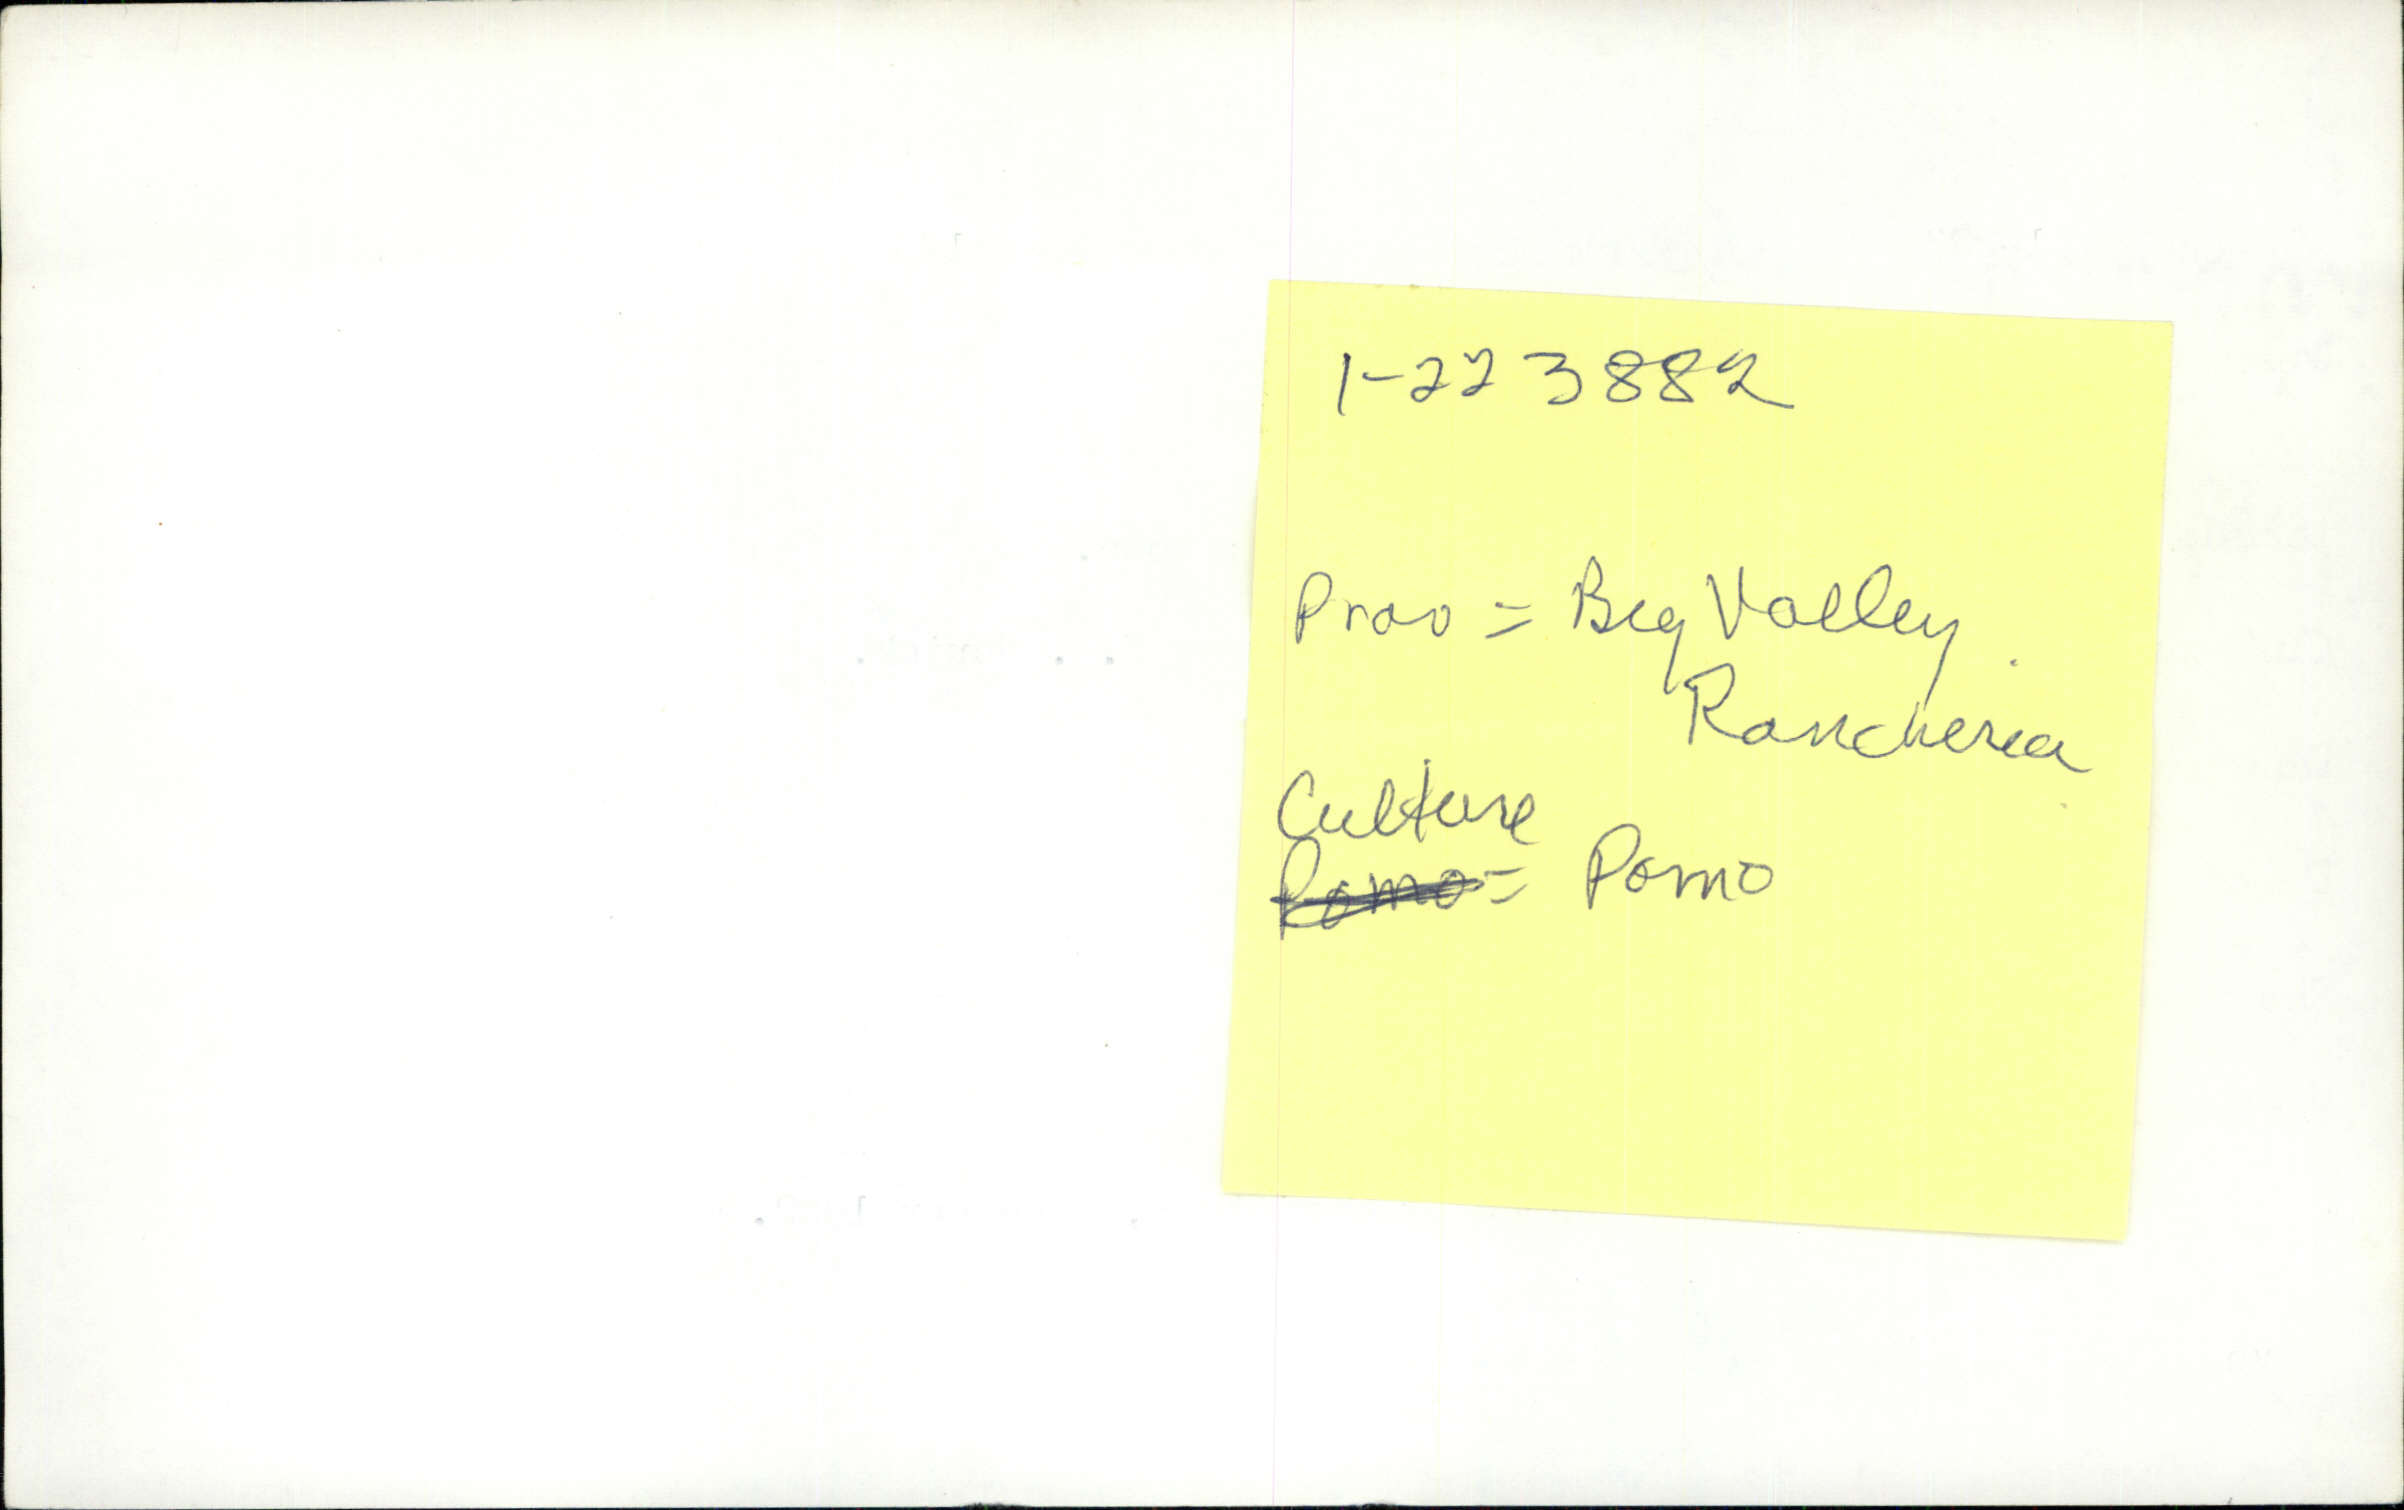 1-223882
Prov = Big Valley
Rancheria
Culture
Pomo = Pomo